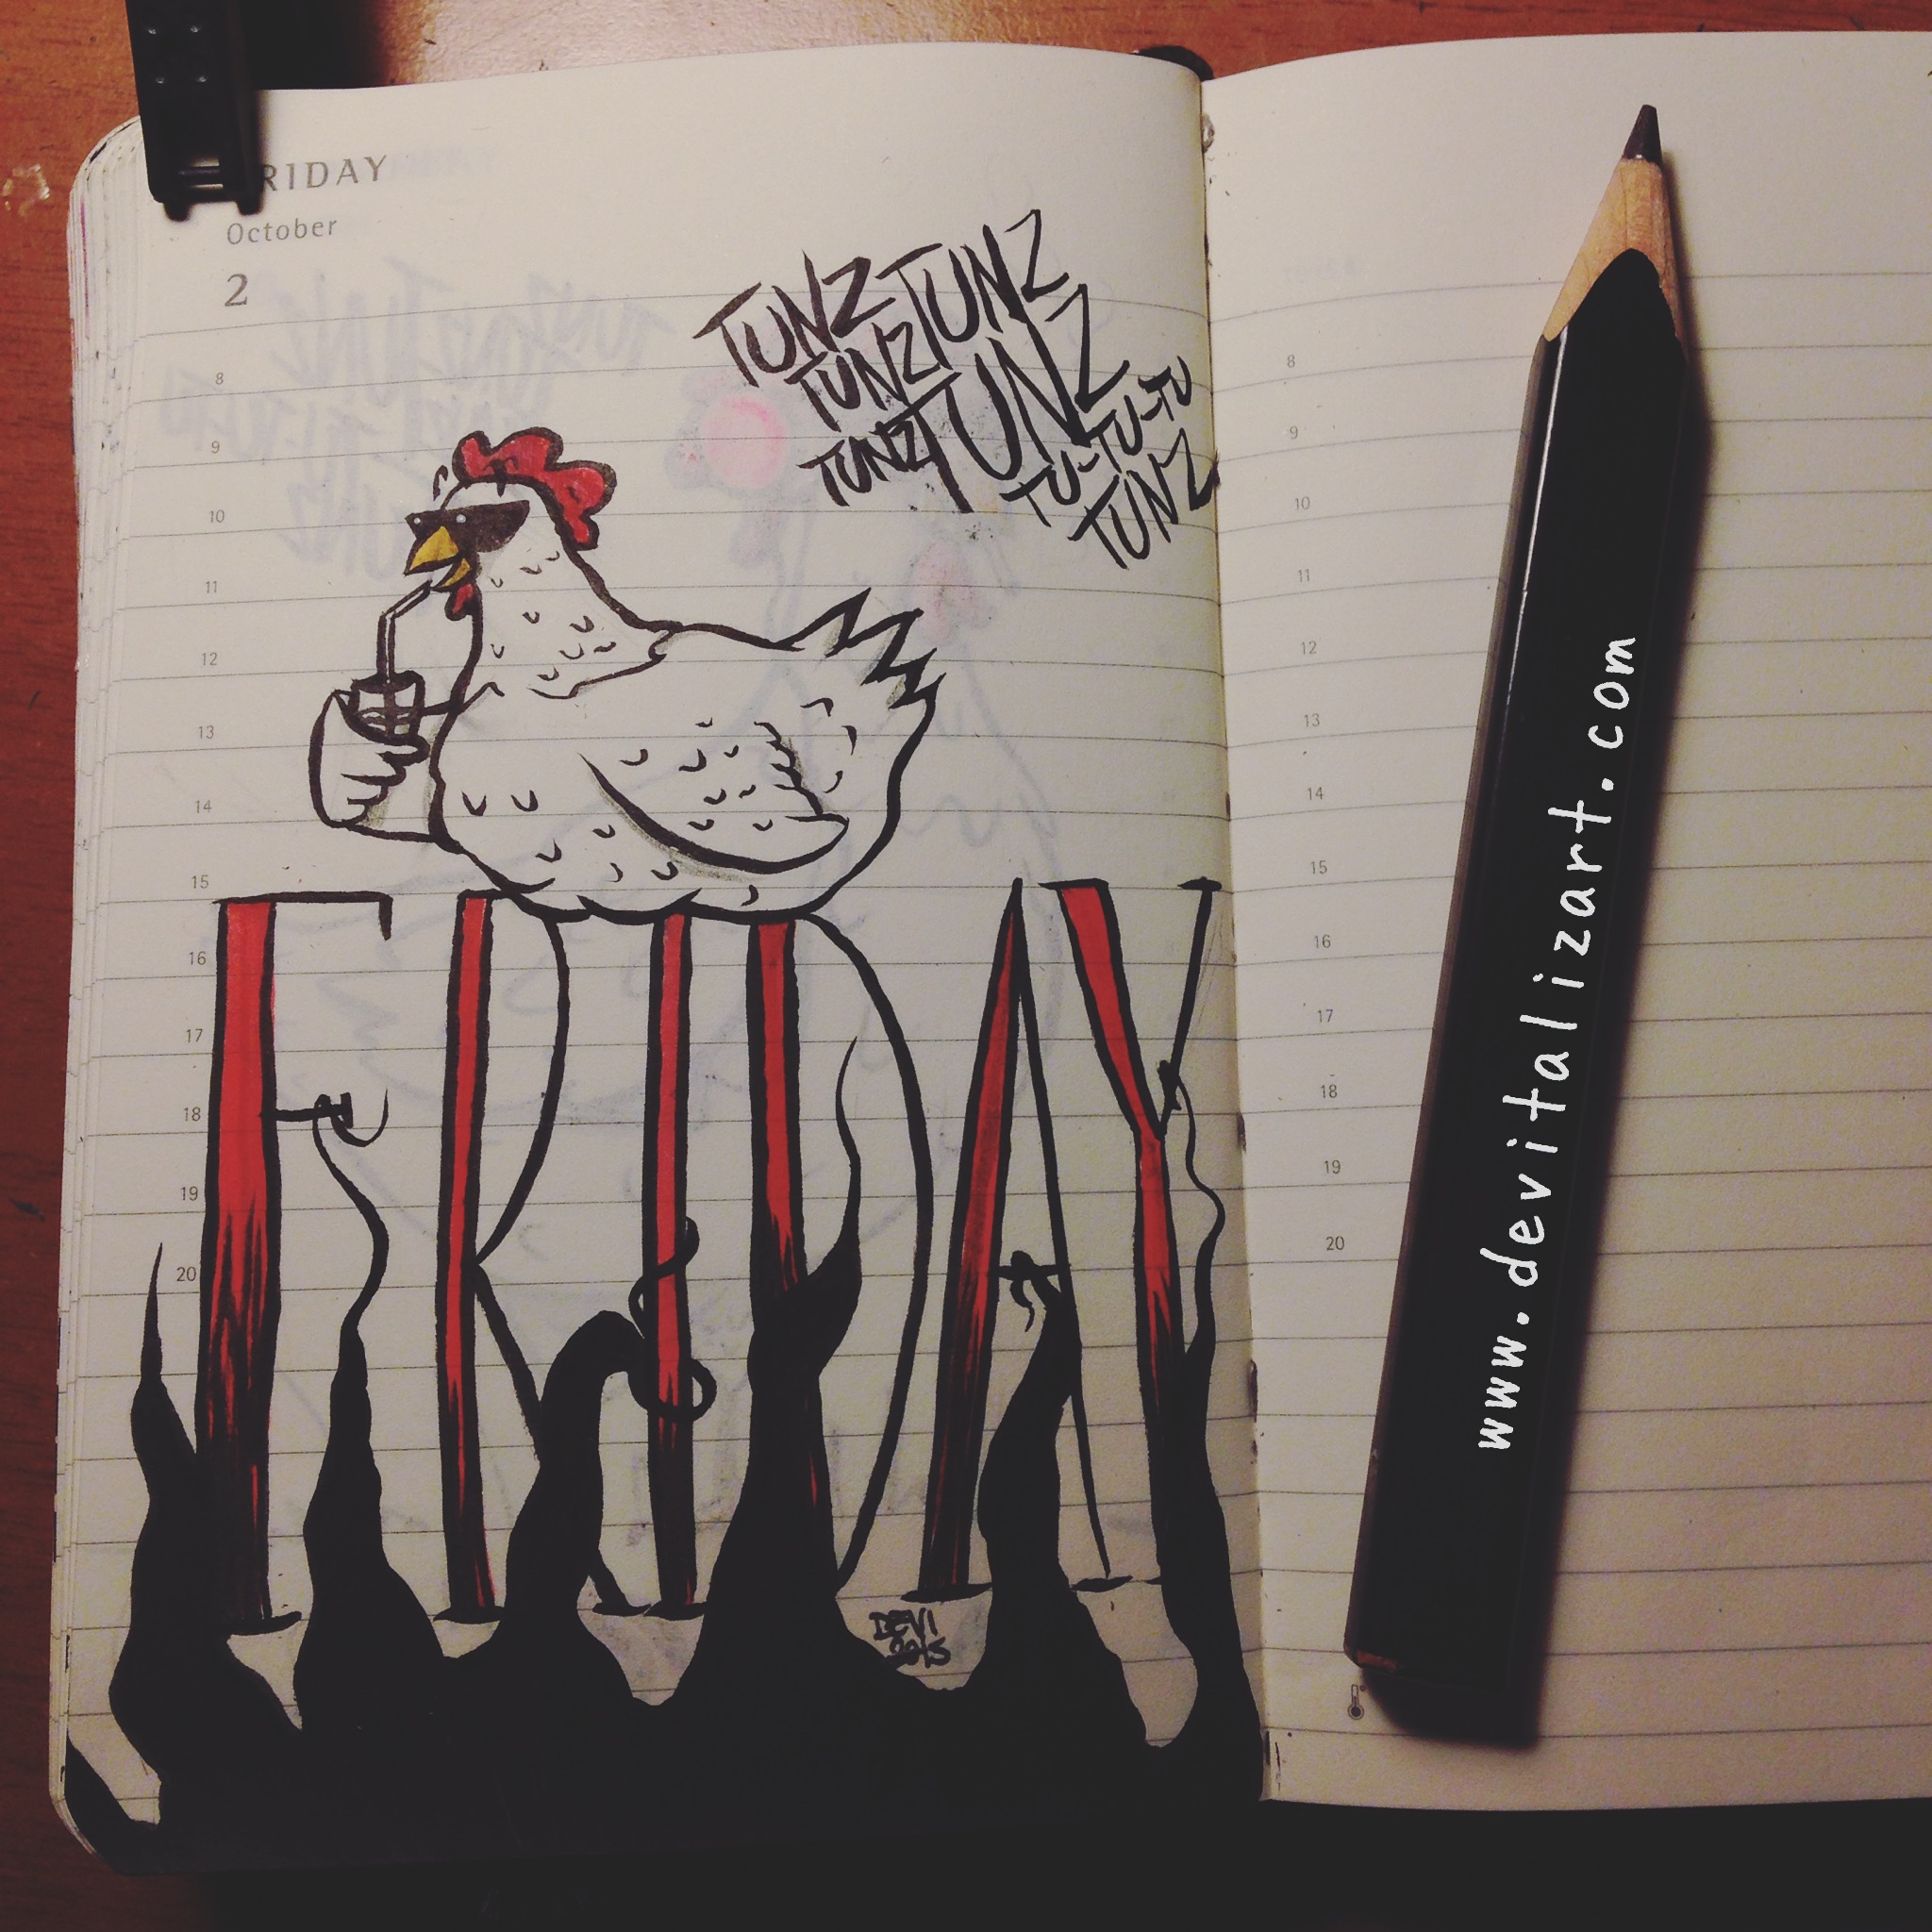 RIDAY
October
2
TUNZ TUNZ
TUNZ TUNZ
TUNZ TU-TU-TU
TUNZ
8
9
10
11
12
13
14
15
16
17
18
19
20
FRIDAY
DEVI
2015
8
9
10
11
12
13
14
15
16
17
18
19
20
www.devitalizart.com